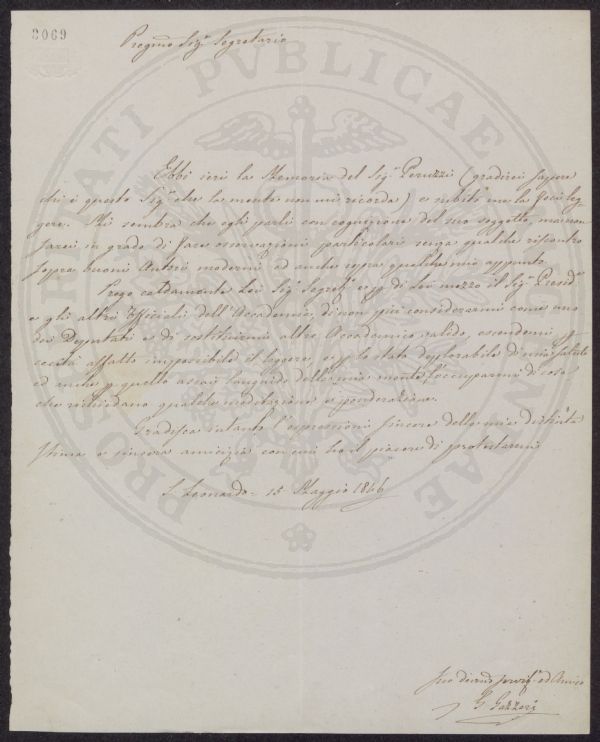 8069
Pregmo Sigr Segretario
PROSPERITATI PVBLICAE AVGENDAE
Ebbi ieri la Memoria del Sigr Peruzzi (gradirei sapere
chi è questo Sigr che la mente non mi ricorda) e subito me la feci leg
gere. Mi sembra che egli parli con cognizione del suo soggetto, ma non
sarei in grado di fare osservazioni particolari senza qualche riscontro
sopra buoni Autori moderni ed anche sopra qualche mio appunto.
Prego caldamente Lei Sigr Segreto e p. di Lei mezzo il Sigr Presid
e gli altri Ufficiali dell'Accademia, di non più considerarmi come uno
dei Deputati e di sostituirmi altro Accademico valido, essendomi p.
cecità affatto impossibile il leggere, e p. lo stato deplorabile di mia salute
ed anche p. quello assai languido della mia mente l'occuparmi di cose
che richiedano qualche meditazione e ponderazione.
Gradisca intanto l'espressioni sincere della mia distinta
stima e sincera amicizia con cui ho il piacere di protestarmi
S. Leonardo - 15 Maggio 1846
Suo devmo servitr ed Amico
G. Gazzeri